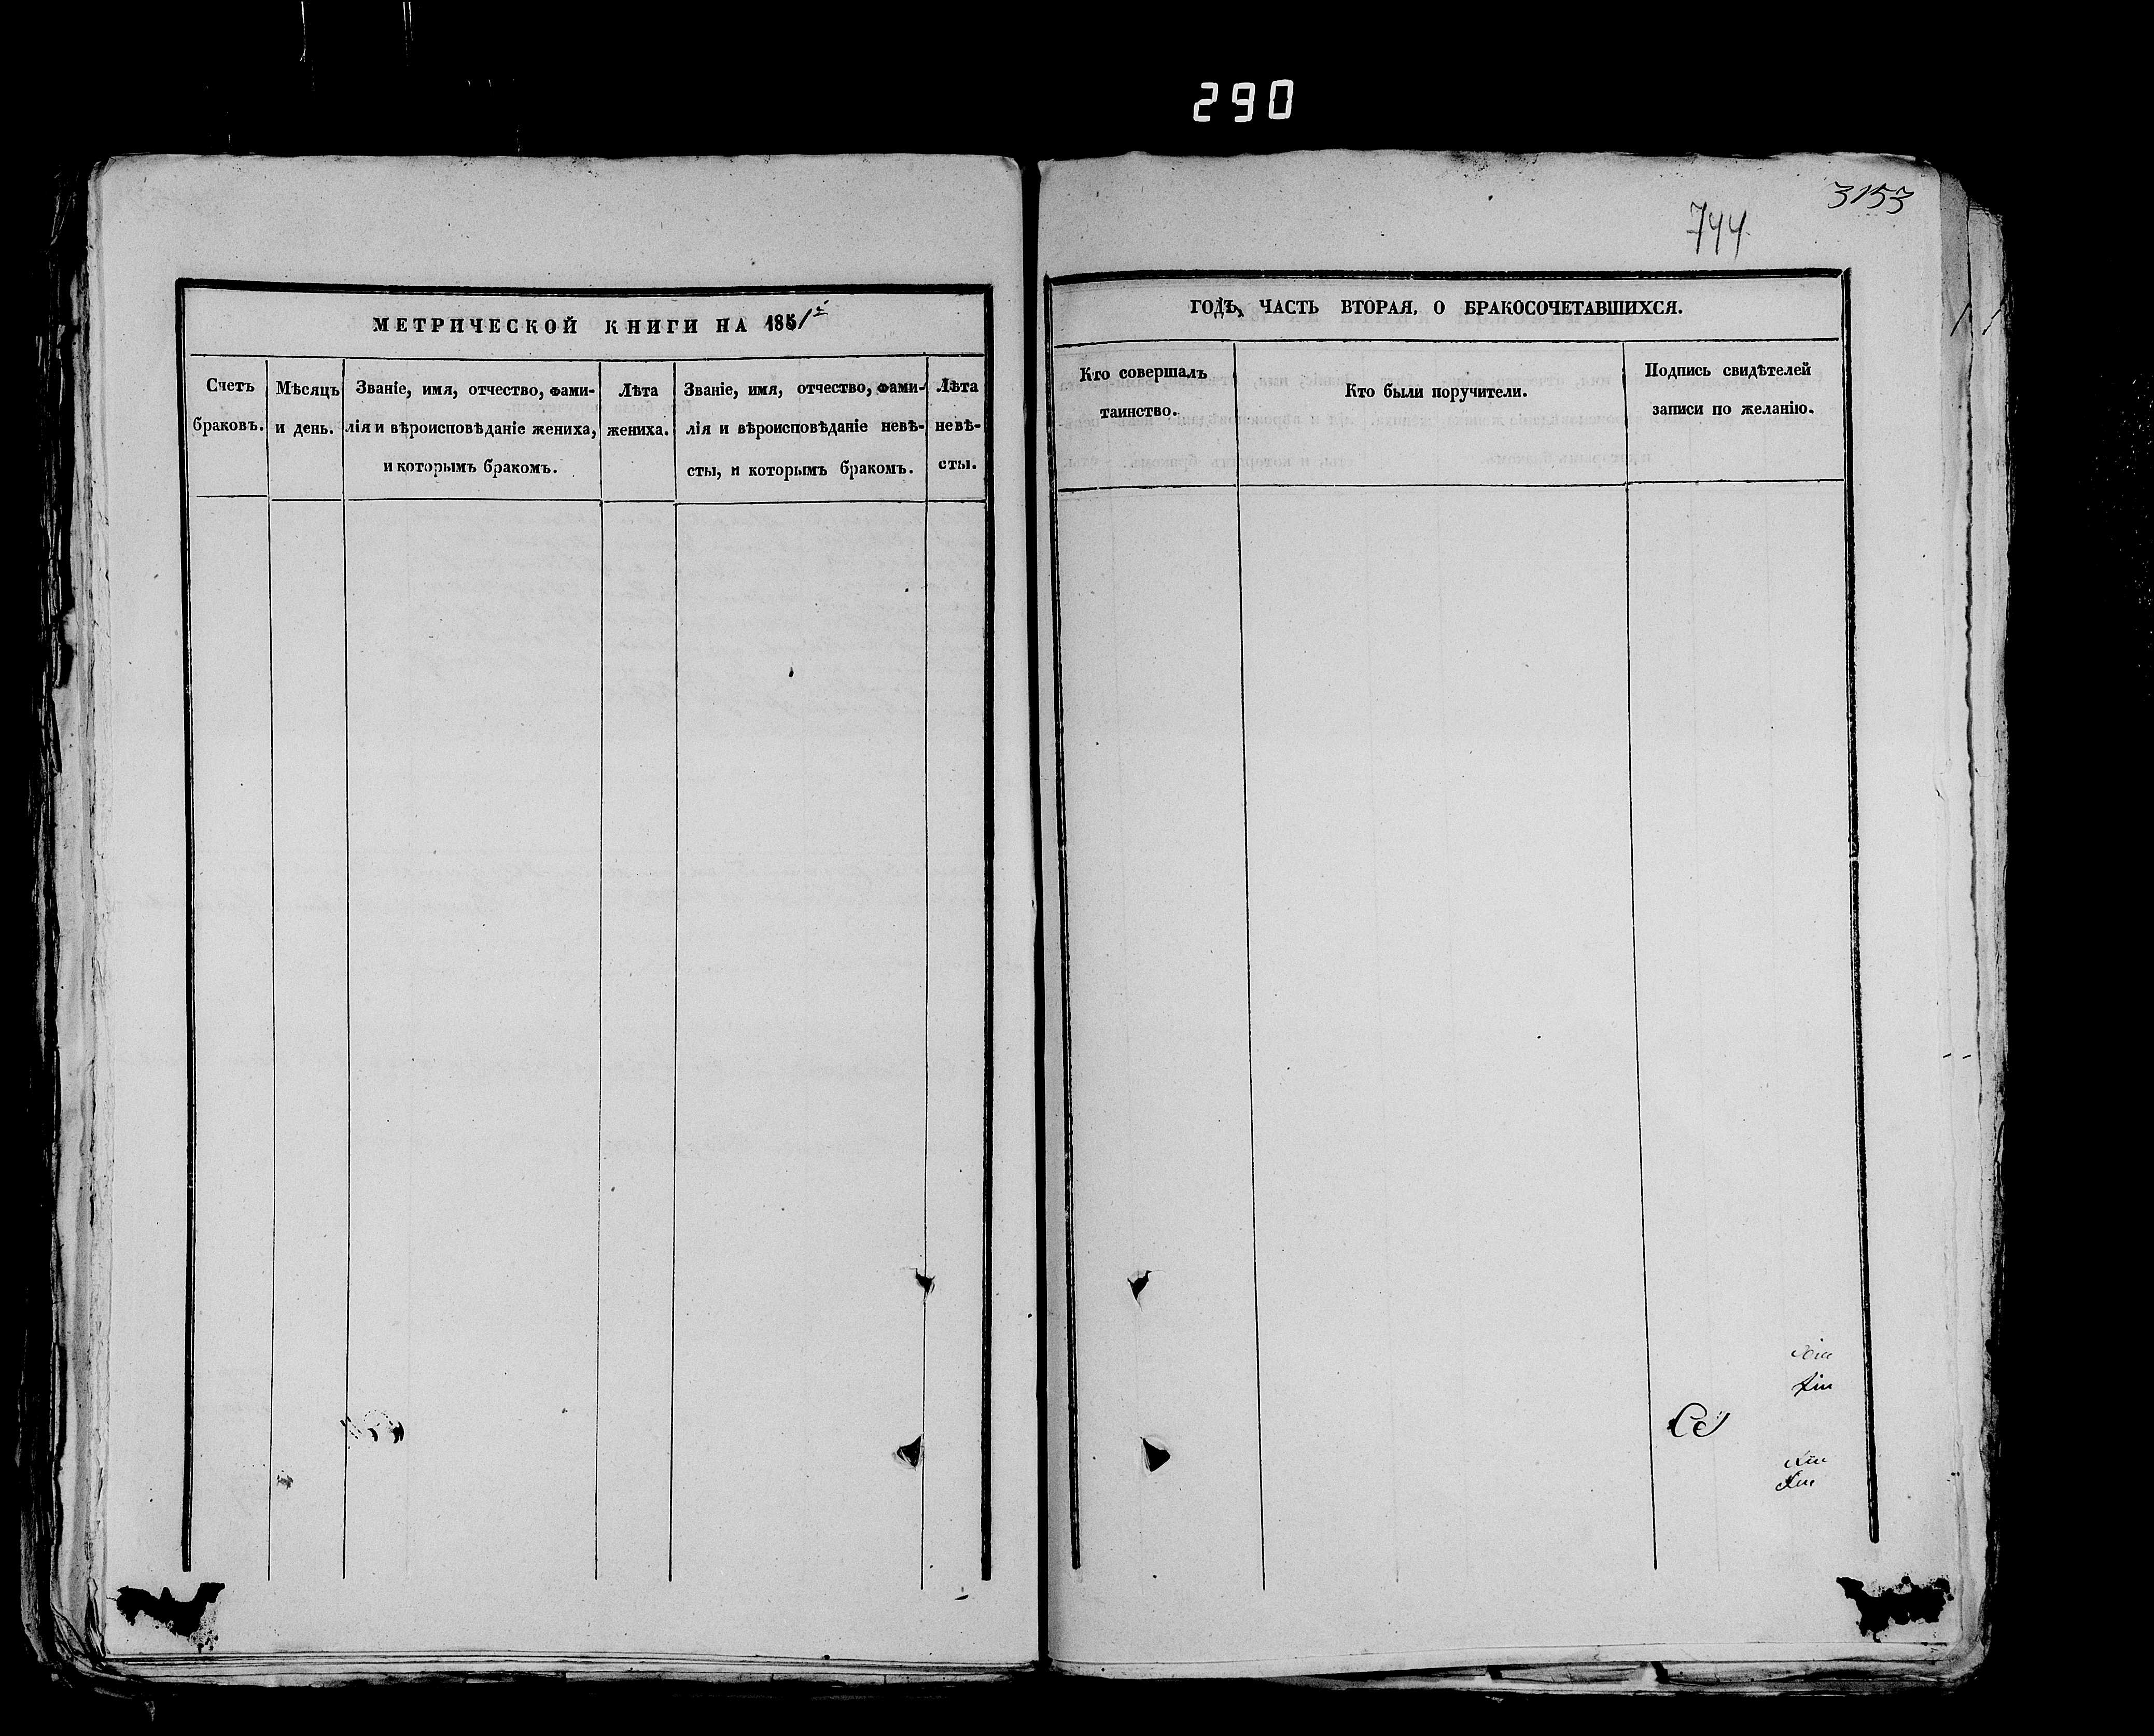 290
3153
744
МЕТРИЧЕСКОЙ КНИГИ НА 1851й
Счетъ
браковъ.
Мѣсяцъ
и день.
Званіе, имя, отчество, фами-
лія и вѣроисповѣданіе жениха,
и которымъ бракомъ.
Лѣта
жениха.
Званіе, имя, отчество, фами-
лія и вѣроисповѣданіе невѣ-
сты, и которымъ бракомъ.
Лѣта
невѣ-
сты.
ГОДЪ, ЧАСТЬ ВТОРАЯ, О БРАКОСОЧЕТАВШИХСЯ.
Кто совершалъ
таинство.
Кто были поручители.
Подпись свидѣтелей
записи по желанію.